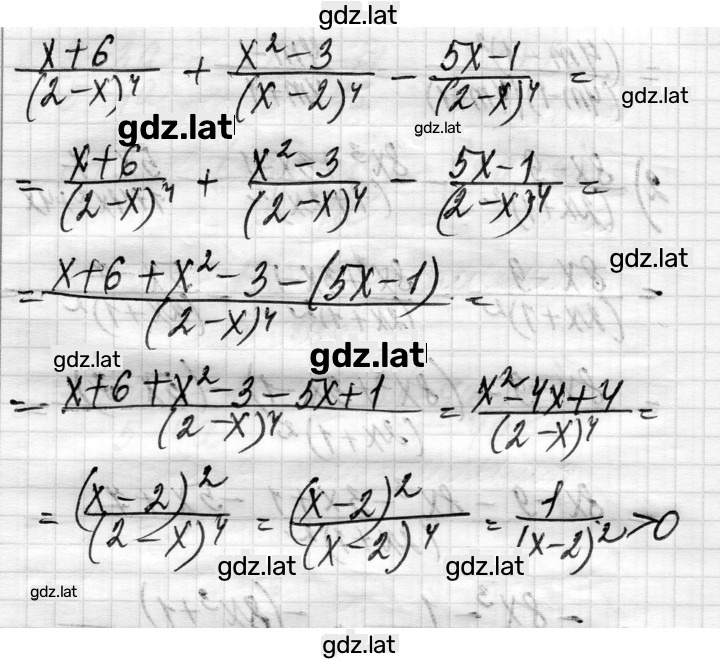 gdz.lat
(x+6)/(2-x)⁴ + (x²-3)/(x-2)⁴ - (5x-1)/(2-x)⁴ =
gdz.lat
gdz.lat
gdz.lat
= (x+6)/(2-x)⁴ + (x²-3)/(2-x)⁴ - (5x-1)/(2-x)⁴ =
gdz.lat
= (x+6+x²-3-(5x-1))/(2-x)⁴ =
gdz.lat
gdz.lat
= (x+6+x²-3-5x+1)/(2-x)⁴ = (x²-4x+4)/(2-x)⁴ =
= (x-2)²/(2-x)⁴ = (x-2)²/(x-2)⁴ = 1/(x-2)² > 0
gdz.lat
gdz.lat
gdz.lat
gdz.lat